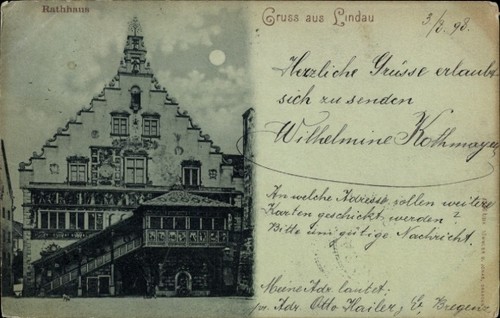 Rathhaus
Gruss aus Lindau
3/3. 98.
Herzliche Grüsse erlaubt
sich zu senden
Wilhelmine Kothmayer
An welche Adresse sollen weitere
Karten geschickt werden?
Bitte um gütige Nachricht.
Meine Adr. lautet:
pr. Adr. Otto Hailer, Bregenz